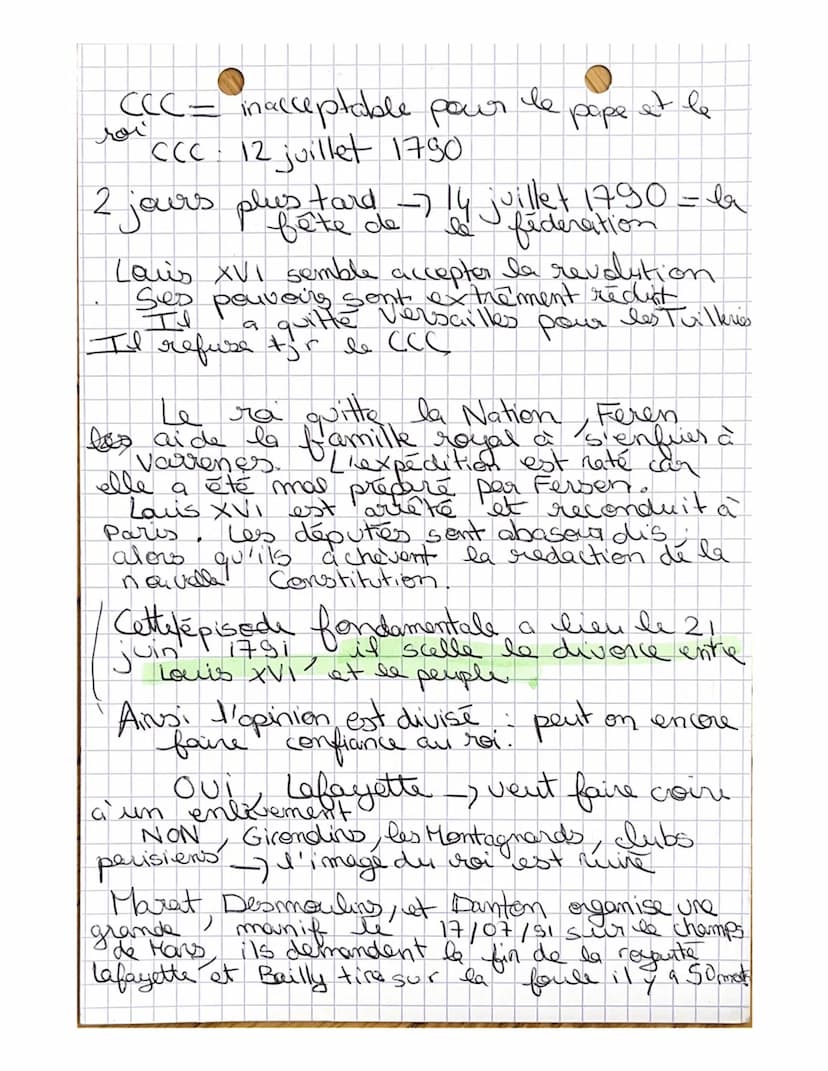 CCC = inacceptable pour le pape et le
roi
CCC : 12 juillet 1790
2 jours plus tard → 14 juillet 1790 = la
fête de la féderation
Louis XVI semble accepter la revolution
. Ses pouvoirs sont extrêment réduit
Il a quitté Versailles pour les Tuilleries
Il refuse tjr le CCC
Le roi quitte la Nation, Feren
aide la famille royal à s'enfuier à
Varrenes. L'expédition est raté car
elle a été mal préparé par Fersen.
Louis XVI est arrêté et reconduit à
Paris. Les députés sont abasourdis
alors qu'ils achèvent la redaction de la
nouvelle Constitution.
Cette épisode fondamentale a lieu le 21
juin 1791 il scelle le divorce entre
Louis XVI et le peuple.
Ainsi l'opinion est divisé : peut on encore
faire confiance au roi.
OUI, Lafayette → veut faire croire
à un enlèvement
NON, Girondins, les Montagnards, clubs
parisiens → l'image du roi est ruiné
Marat, Desmoulins, et Danton organise une
grande manif le 17/07/91 sur le champs
de Mars, ils demandent la fin de la royauté
Lafayette et Bailly tire sur la foule il y a 50 morts